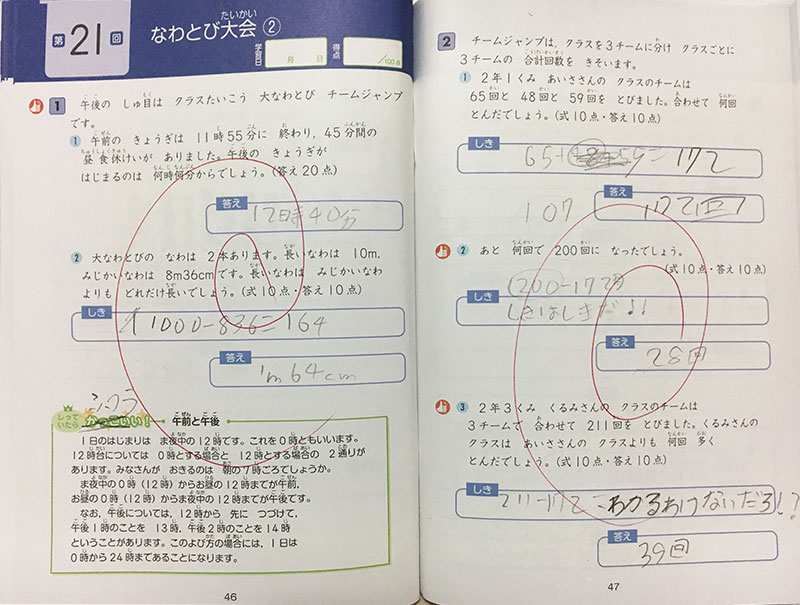 第21回
なわとび大会②
たいかい
学習日
月　日
得点
／100点
1 午後の しゅ目は クラスたいこう 大なわとび チームジャンプ
です。
1 午前の きょうぎは 11時55分に 終わり、45分間の
昼食休けいが ありました。午後の きょうぎが
はじまるのは 何時何分からでしょう。(答え20点)
答え
12時40分
2 大なわとびの なわは 2本あります。長いなわは 10m、
みじかいなわは 8m36cmです。長いなわは みじかいなわ
よりも どれだけ長いでしょう。(式10点・答え10点)
しき
1000-836=164
答え
1m64cm
しっていたら かっこいい! 午前と午後
1日のはじまりは ま夜中の12時です。これを0時ともいいます。
12時台については 0時とする場合と 12時とする場合の 2通りが
あります。みなさんが おきるのは 朝の7時ごろでしょうか。
ま夜中の0時(12時)からお昼の12時までが午前、
お昼の0時(12時)からま夜中の12時までが午後です。
なお、午後については、12時から 先に つづけて、
午後1時のことを 13時、午後2時のことを14時
ということがあります。このよび方の場合には、1日は
0時から24時まであることになります。
46
2 チームジャンプは、クラスを3チームに分け クラスごとに
3チームの 合計回数を きそいます。
1 2年1くみ あいささんの クラスのチームは
65回と 48回と 59回を とびました。合わせて 何回
とんだでしょう。(式10点・答え10点)
しき
65+48+59=172
107
答え
172回
2 あと 何回で 200回に なったでしょう。
(式10点・答え10点)
しき
200-172
しきはしきだ!!
答え
28回
3 2年3くみ くるみさんの クラスのチームは
3チームで 合わせて 211回を とびました。くるみさんの
クラスは あいささんの クラスよりも 何回 多く
とんだでしょう。(式10点・答え10点)
しき
211-172=わかるわけないだろ!?
答え
39回
47